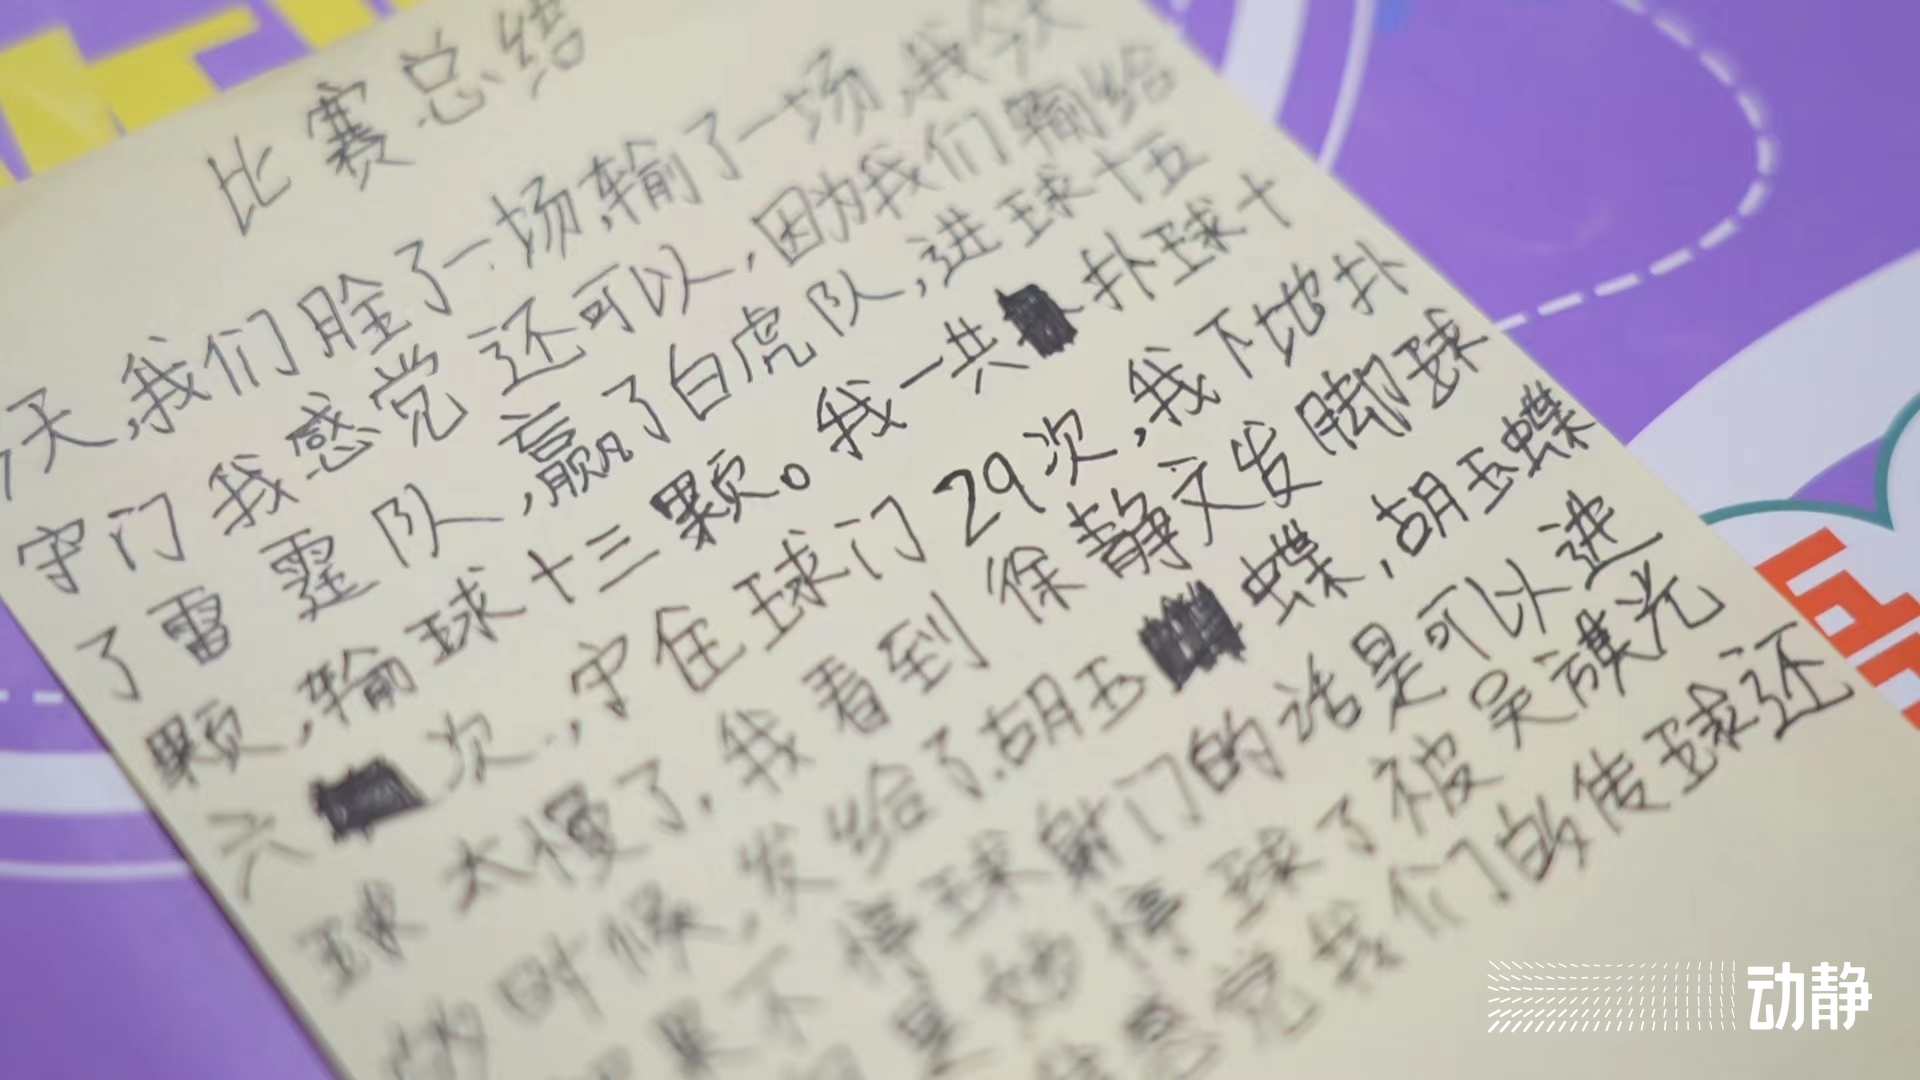 比赛总结
今天,我们胜了一场,输了一场,我今天
守门我感觉还可以,因为我们输给
了雷霆队,赢了白虎队,进球十五
颗,输球十三颗。我一共扑球十
六次,守住球门29次,我下地扑
球太慢了,我看到徐静文发脚球
的时候,发给了胡玉蝶,胡玉蝶
如果不停球射门的话是可以进
是她停球了被吴旗光
我感觉我们的传球还
动静